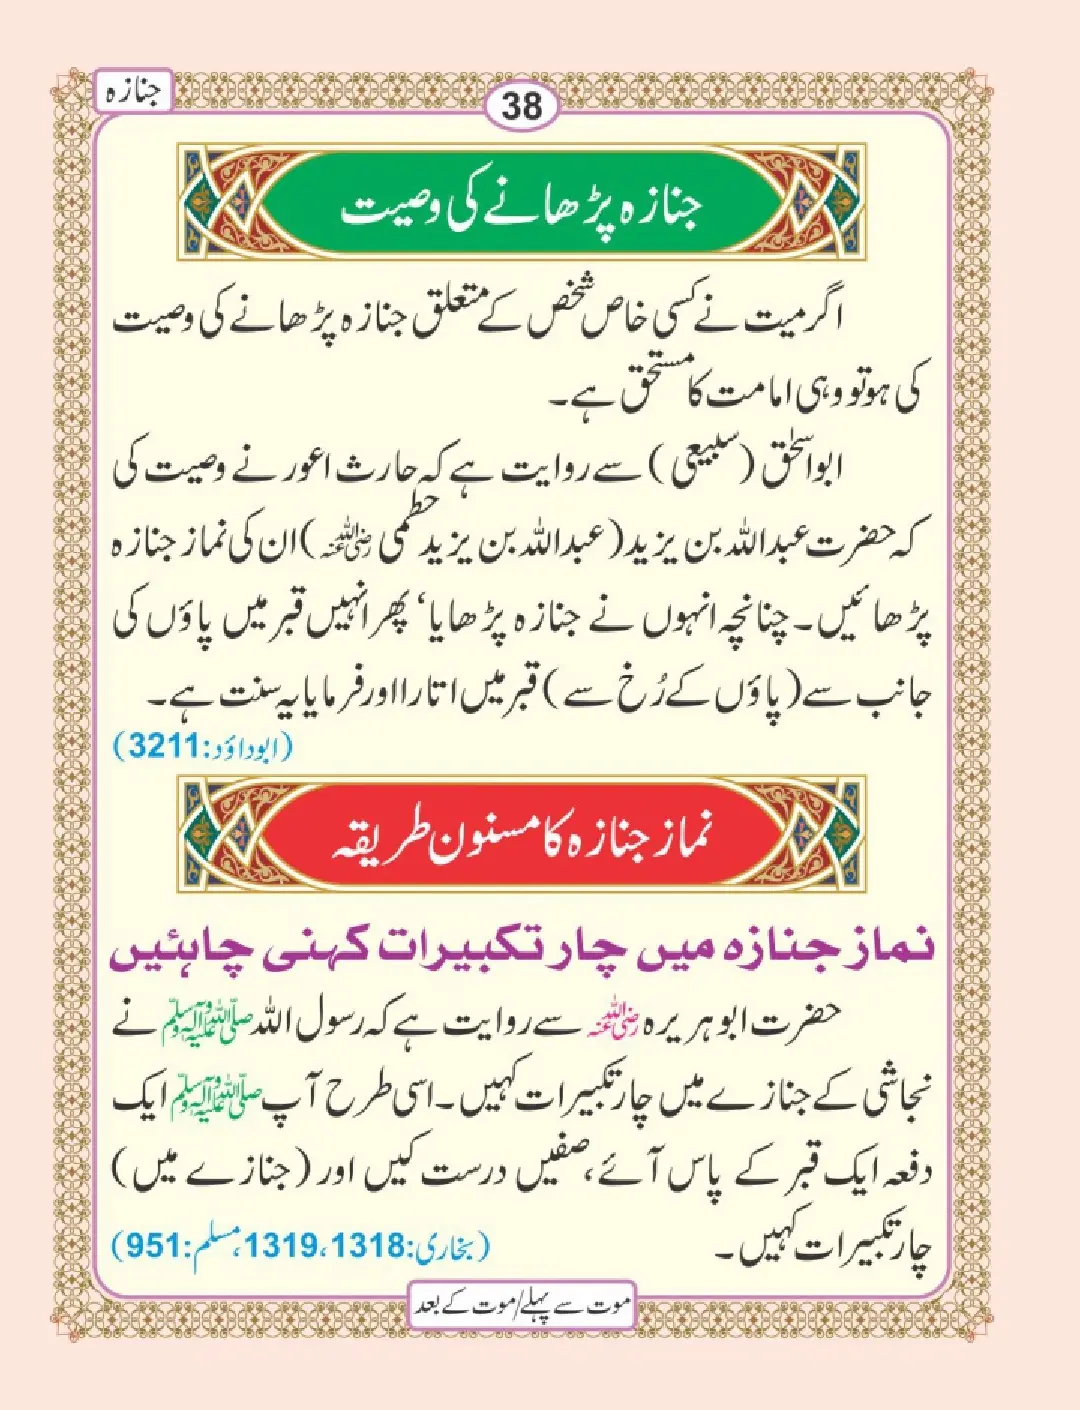 جنازہ
38
جنازہ پڑھانے کی وصیت
اگر میت نے کسی خاص شخص کے متعلق جنازہ پڑھانے کی وصیت
کی ہو تو وہی امامت کا مستحق ہے۔
ابو اسحٰق (سبیعی) سے روایت ہے کہ حارث اعور نے وصیت کی
کہ حضرت عبداللہ بن یزید (عبداللہ بن یزید حطمی رضی اللہ عنہ) ان کی نماز جنازہ
پڑھائیں۔ چنانچہ انہوں نے جنازہ پڑھایا‘ پھر انہیں قبر میں پاؤں کی
جانب سے (پاؤں کے رُخ سے) قبر میں اتارا اور فرمایا یہ سنت ہے۔
(ابوداؤد:3211)
نماز جنازہ کا مسنون طریقہ
نماز جنازہ میں چار تکبیرات کہنی چاہئیں
حضرت ابو ہریرہ رضی اللہ عنہ سے روایت ہے کہ رسول اللہ صلی اللہ علیہ وسلم نے
نجاشی کے جنازے میں چار تکبیرات کہیں۔ اسی طرح آپ صلی اللہ علیہ وسلم ایک
دفعہ ایک قبر کے پاس آئے، صفیں درست کیں اور (جنازے میں)
چار تکبیرات کہیں۔ (بخاری:1318، 1319، مسلم:951)
موت سے پہلے/موت کے بعد